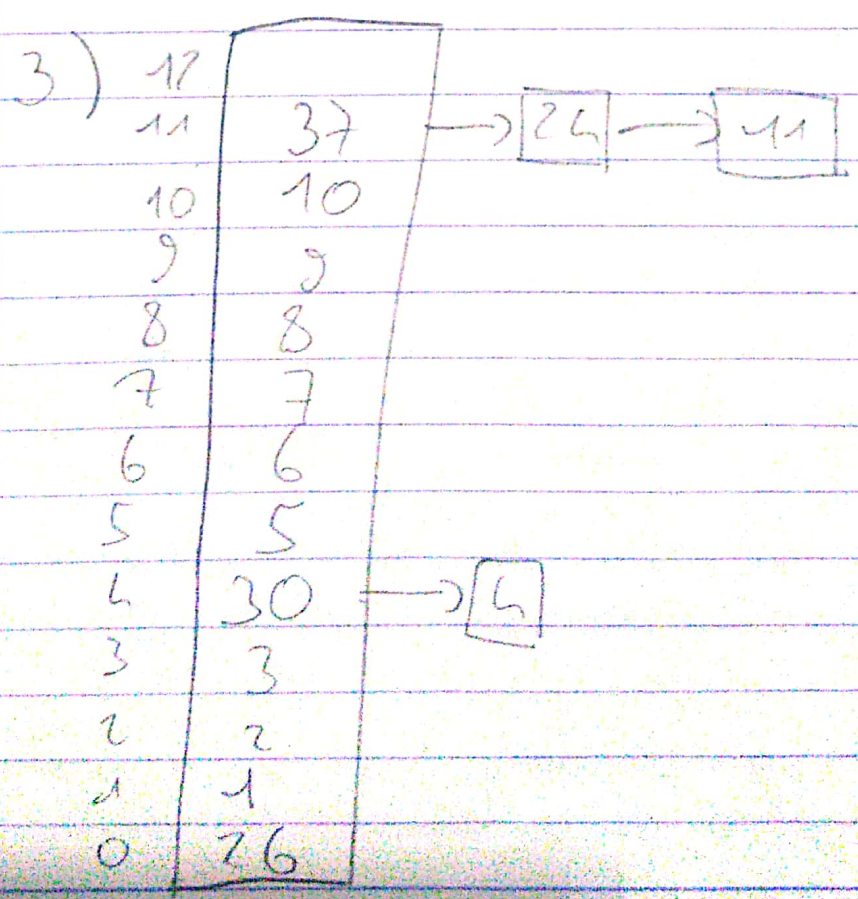 3) 12
11 37 → 24 → 11
10 10
9 9
8 8
7 7
6 6
5 5
4 30 → 4
3 3
2 2
1 1
0 26